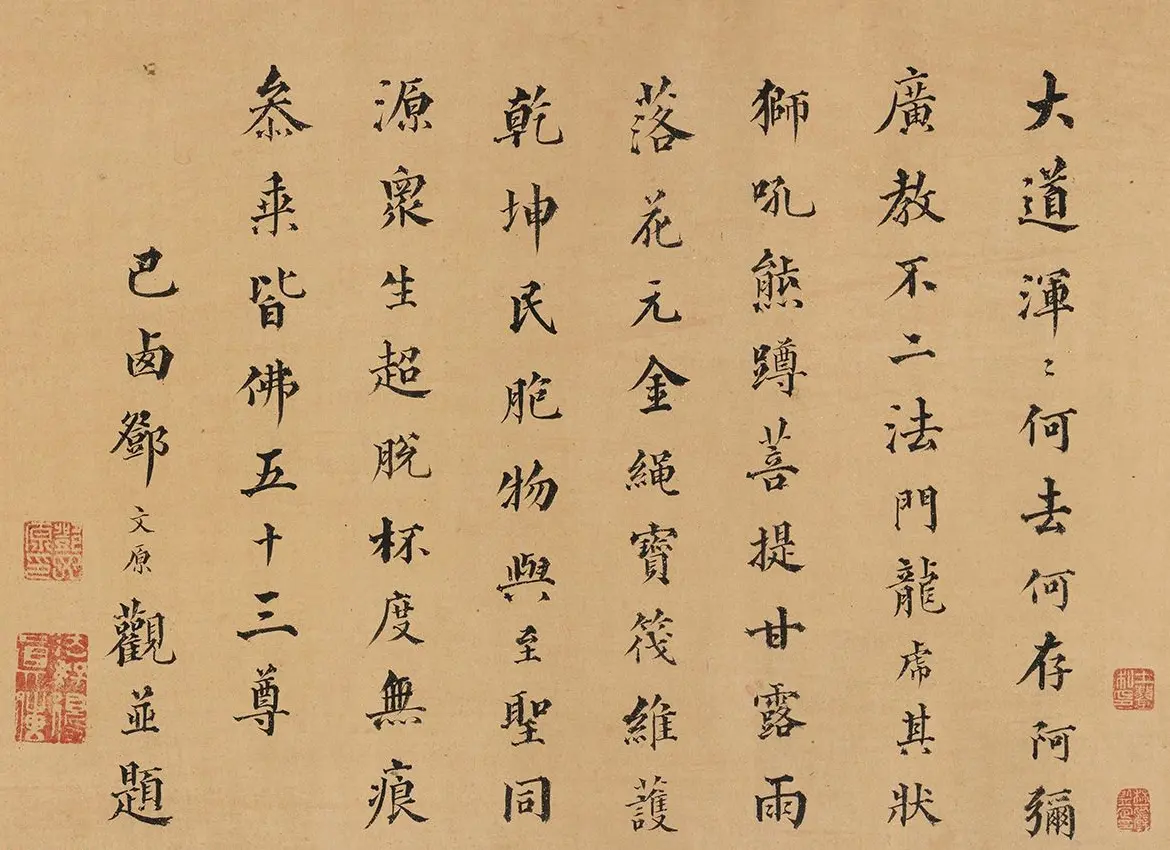 大道渾〻何去何存阿彌
廣教不二法門龍虎其狀
獅吼熊蹲菩提甘露雨
落花元金繩寶筏維護
乾坤民胞物與至聖同
源衆生超脫杯度無痕
叅来皆佛五十三尊
巴西鄧文原觀並題